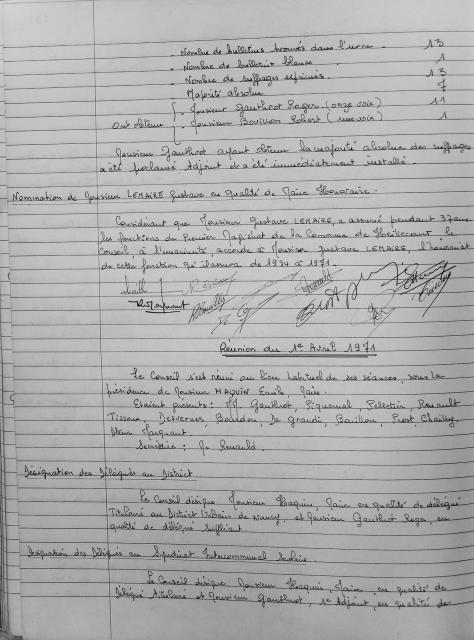 - Nombre de bulletins trouvés dans l'urne. 13
- Nombre de bulletins blancs 1
- Nombre de suffrages exprimés. 13
- Majorité absolue 7
Ont obtenu - Monsieur Gauthrot Roger (onze voix) 11
- Monsieur Bouillon Robert (une voix) 1
Monsieur Gauthrot ayant obtenu la majorité absolue des suffrages
a été proclamé Adjoint et a été immédiatement installé.
Nomination de Monsieur LEMAIRE Gustave en qualité de Maire Honoraire.
Considérant que Monsieur Gustave LEMAIRE, a assuré pendant 37 ans
les fonctions de Premier Magistrat de la Commune de Heillecourt le
Conseil, à l'unanimité, accorde à Monsieur Gustave LEMAIRE, l'honorariat
de cette fonction qu'il assura de 1934 à 1971.
Réunion du 1er Avril 1971
Le Conseil s'est réuni au lieu habituel de ses séances, sous la
présidence de Monsieur Emile, Maire.
Etaient présents : MM. Gauthrot, Piquemal, Pelletier, Renault
Tisseur, Desvernes, Bourdon, De Grandi, Bouillon, Chailly,
Secrétaire : Renauld.
Désignation des Délégués au District.
Le Conseil désigne Monsieur Maire en qualité de délégué
Titulaire au District Urbain de Nancy, et Monsieur Gauthrot Roger, en
qualité de délégué suppléant.
Désignation des Délégués au Syndicat Intercommunal Scolaire.
Le Conseil désigne Monsieur Maire, en qualité de
Délégué titulaire et Monsieur Gauthrot, 1er Adjoint, en qualité de